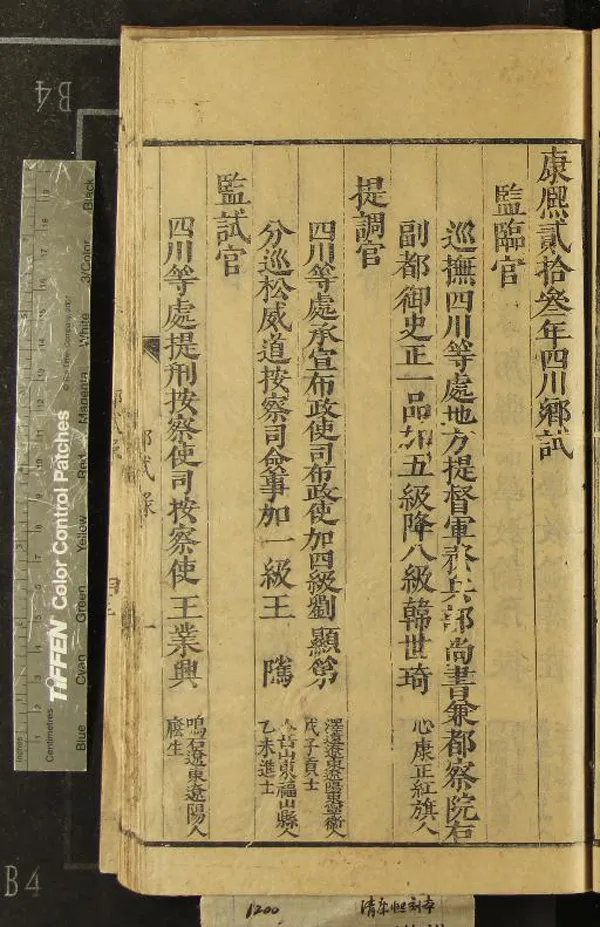 康熈貳拾叄年四川鄉試
監臨官
巡撫四川等處地方提督軍務兵部尚書兼都察院右
副都御史正一品加五級降八級韓世琦
心康正紅旗人
提調官
四川等處承宣布政使司布政使加四級劉顯第
澤遠遼東遼陽東寧衛人
戊子貢士
分巡松威道按察司僉事加一級王隲
山東福山縣人
乙未進士
監試官
四川等處提刑按察使司按察使王業興
鳴石遼東遼陽人
廕生
鄉試錄
一
B4
B4
TIFFEN Color Control Patches
© The Tiffen Company, 2007
Blue Cyan Green Yellow Red Magenta White 3/Color Black
Inches
Centimetres
1200
清康熙刻本